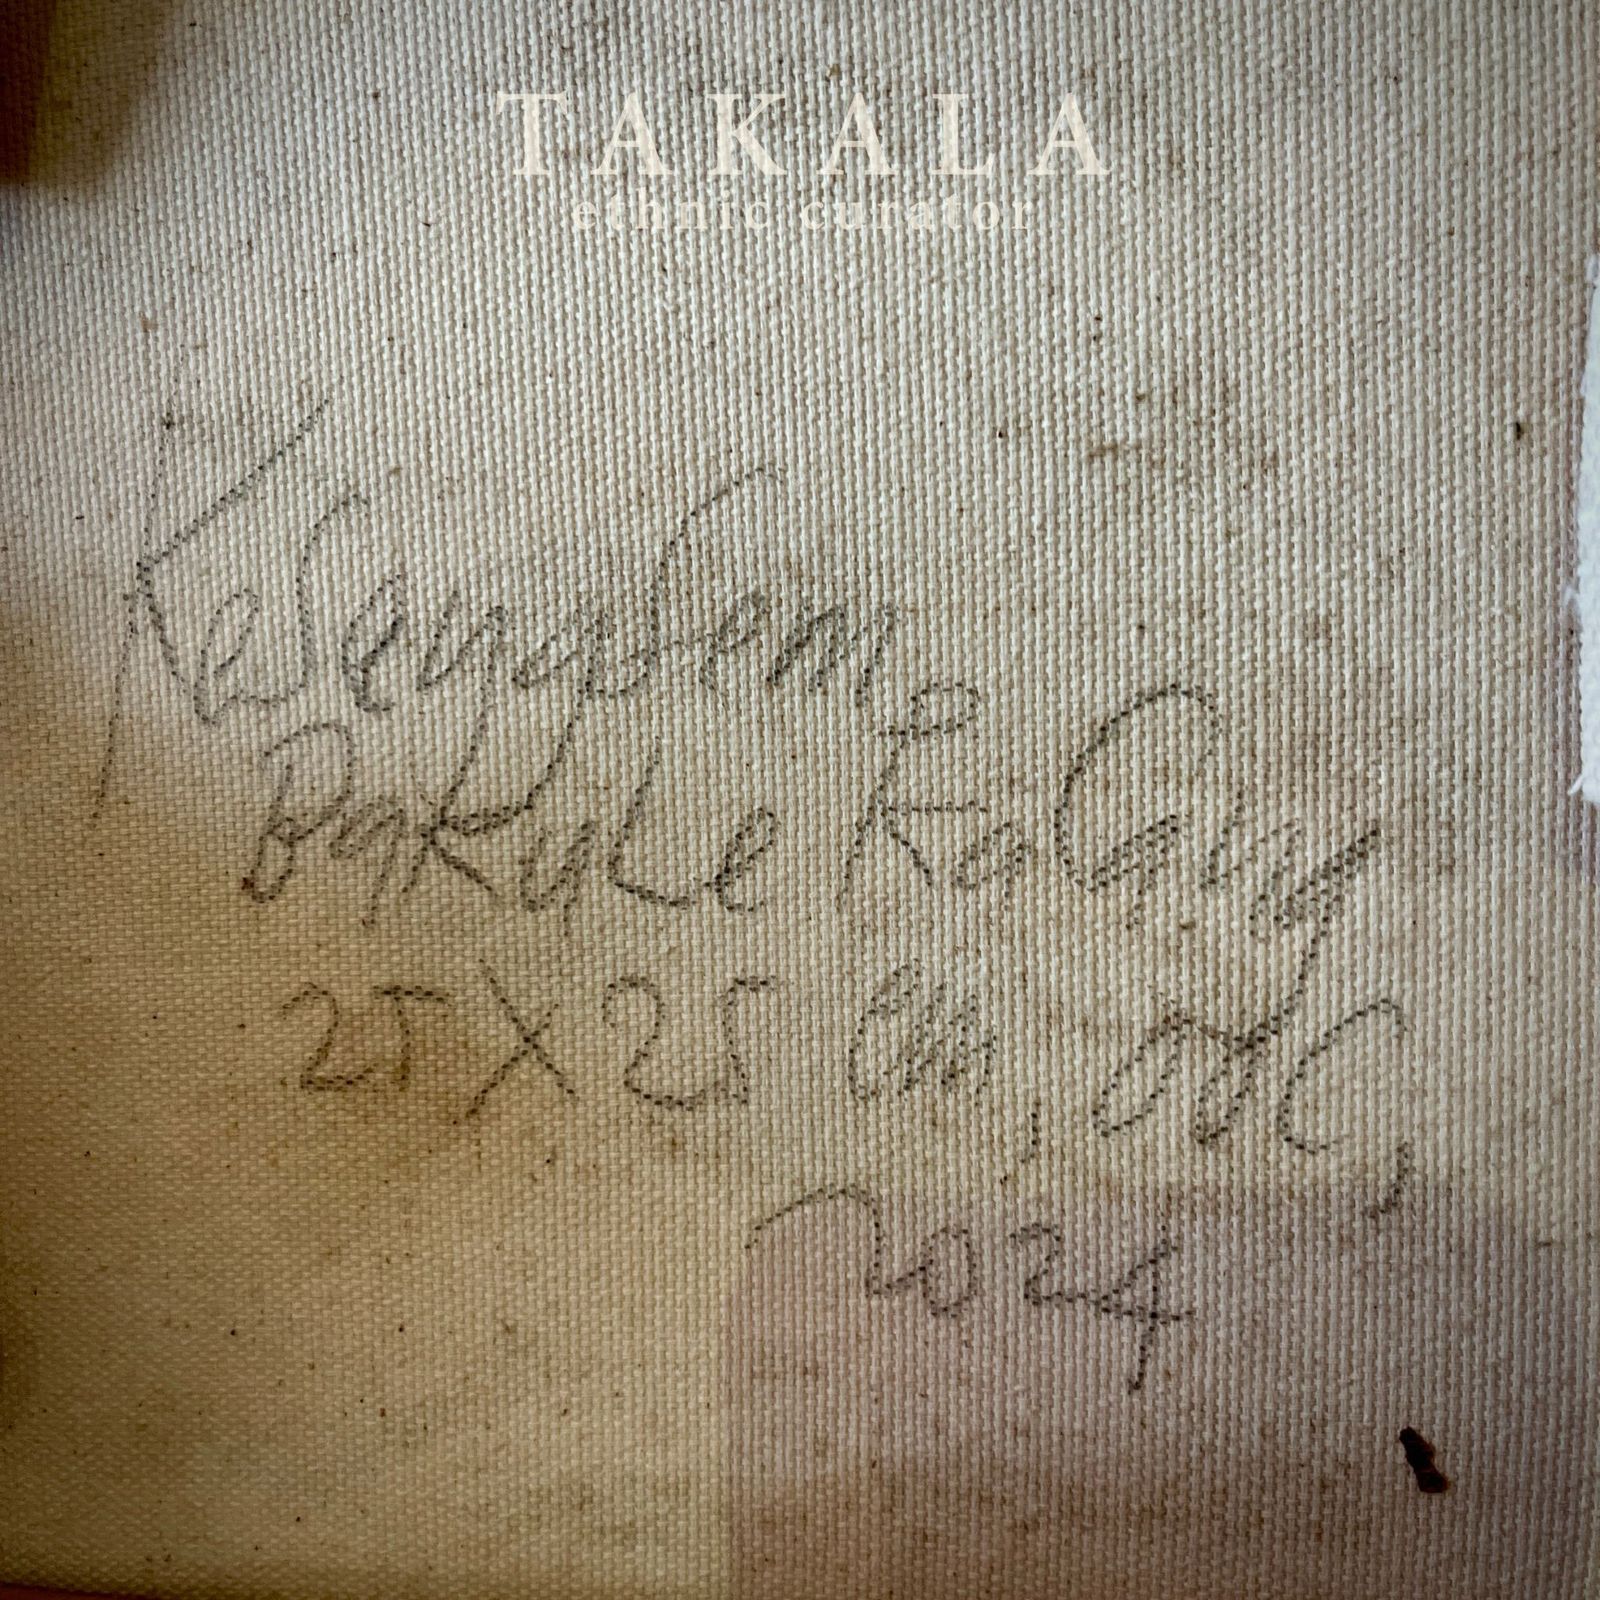 TAKALA
ethnic curator
Kesengsem
Bakule
25 X 25 Cm, OOC,
2024